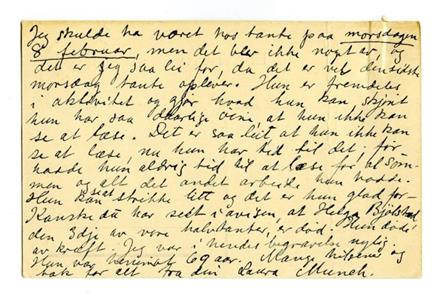 Jeg skulde ha været hos tante paa morsdagen
8 februar, men det blev ikke nogt av og
det er jeg saa lei for, da det er vel den sidste
morsdag tante oplever. Hun er fremdeles
i aktivitet og gjør hvad hun kan, skjønt
hun har saa daarlige øine, at hun ikke kan
se at læse. Det er saa leit, at hun ikke kan
se at læse, nu hun har tid til det, før
hadde hun aldrig tid til at læse for
men og alt det andet arbeide hun hadde.
Hun kan strikke litt og det er hun glad for.
Kanske du har set i avisen, at Helga
den 3dje av vore halvtanter, er død. Hun døde
av kræft. Jeg var i hendes begravelse nylig.
Hun var 69 aar. Mange hilsener og
tak for alt fra din Laura Munch.